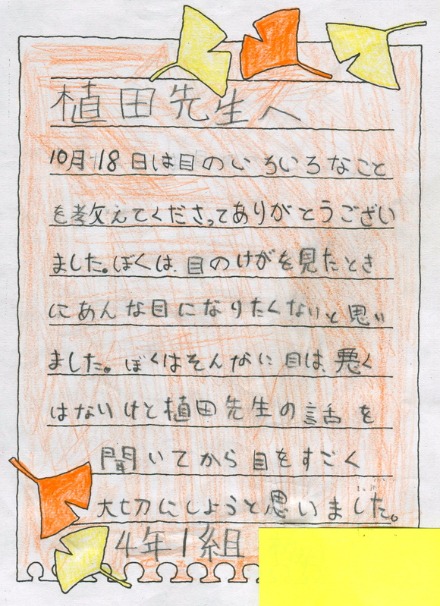 植田先生へ
10月18日は目のいろいろなこと
を教えてくださってありがとうござい
ました。ぼくは、目のけがを見たとき
にあんな目になりたくないと思い
ました。ぼくはそんなに目は、悪く
はないけど植田先生の話を
聞いてから目をすごく
大切にしようと思いました。
4年1組